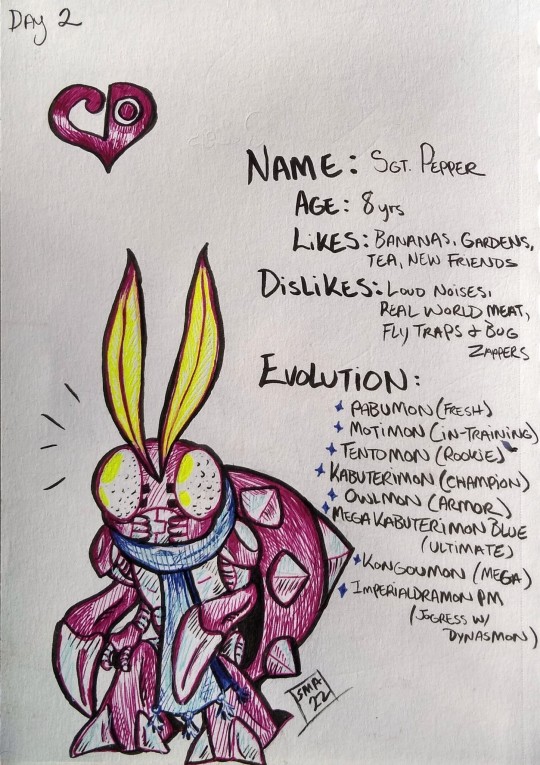 Day 2
NAME: SGT. PEPPER
AGE: 8 yrs
LiKES: BANANAS, GARDENS,
TEA, NEW FRIENDS
DiSLiKES: LOUD NOISES,
REAL WORLD MEAT,
FLY TRAPS & BUG
ZAPPERS
EVOLUTION:
PABUMON (FRESH)
MOTIMON (IN-TRAINING)
TENTOMON (ROOKIE)
KABUTERIMON (CHAMPION)
OWLMON (ARMOR)
MEGA KABUTERIMON BLUE
(ULTIMATE)
KONGOUMON (MEGA)
IMPERIALDRAMON PM
(JOGRESS W/
DYNASMON)
SMA
22